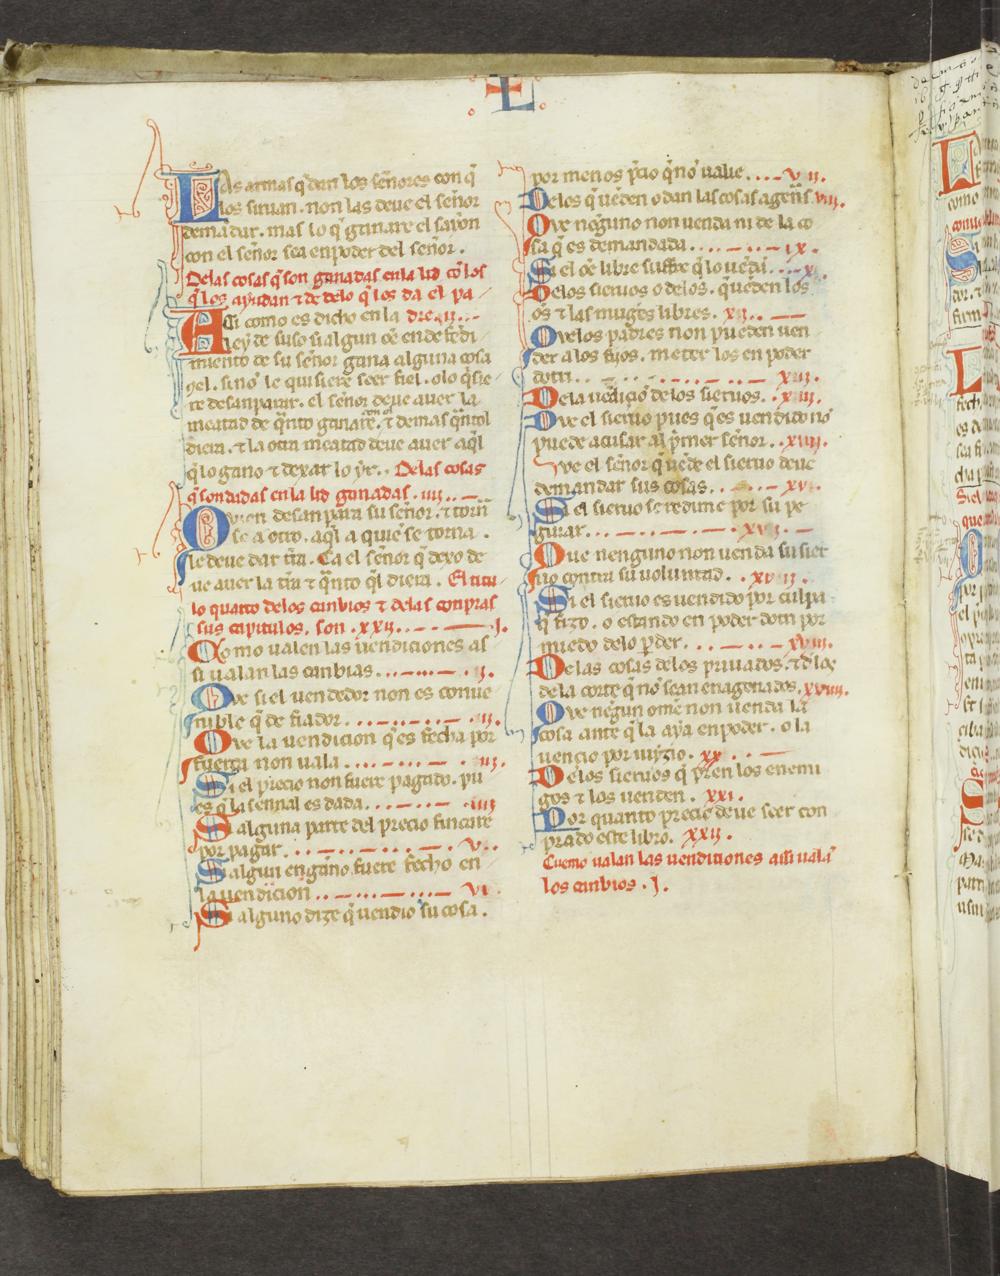 L
Las armas q̃ dan los señores con q̃
los siruan. non las deue el señor
demandar. mas lo q̃ ganare el sayon
con el señor sea en poder del señor.
Delas cosas q̃ son ganadas enla lid cõ los
q̃ los ayudan ⁊ de delo q̃ los da el pa
Assi como es dicho en la
ley de suso si algun oẽ ende fedi
miento de su señor gana alguna cosa
del. si nõ le quisiere seer fiel. o lo q̃sie
re desanparar. el señor deue auer la
meatad de q̃nto ganare. ⁊ demas q̃ntol
diera. ⁊ la otra meatad deue auer aq̃l
q̃ lo gano ⁊ dexar lo yr. Delas cosas
q̃ son dadas enla lid ganadas. iiij.
Quien desanpara su señor. ⁊ torna
se a otro. aq̃l a quie se torna.
le deue dar tr̃a. Ca el señor q̃ dexo de
ue auer la tr̃a ⁊ q̃nto q̃l diera. El titu
lo quarto delos canbios ⁊ delas conpras
sus capitulos. son .xxij. I.
Como ualen las uendiciones as
si ualan las canbias ij.
Que si el uendedor non es conue
nible q̃ de fiador iij.
Que la uendicion q̃ es fecha por
fuerça non uala iij.
Si el precio non fuere pagado. pu
es q̃ la sennal es dada iiij
Si alguna parte del precio fincare
por pagar v.
Si algun engaño fuere fecho en
la uendicion vi.
Si alguno dize q̃ uendio su cosa.
por menos p̃cio q̃ nõ ualie vij.
Delos q̃ uẽden o dan las cosas agenas viij.
Que nẽguno non uenda ni de la co
sa q̃ es demandada ix.
Si el oẽ libre sufre q̃ lo uẽda x.
Delos sieruos o delos. q̃ uẽden los
oẽs ⁊ las mugẽs libres. xi.
Que los padres non pueden uen
der a los fijos. meter los en poder
dotri xij.
Dela uẽdiciõ delos sieruos. xiij.
Que el sieruo pues q̃ es uendido nõ
puede acusar al p̃mer señor. xiiij.
Que el señor q̃ uẽde el sieruo deue
demandar sus cosas xv.
Si el sieruo se redime por su pe
guiar xvi.
Que nenguno non uenda su sier
uo contra su uoluntad. xvij.
Si el sieruo es uendido por culpa
q̃ fizo. o estando en poder dotri por
miedo delo p̃der xviij.
Delas cosas delos priuados. ⁊ dlos
dela corte q̃ nõ sean enagenados. xviiij.
Que nẽgun ome non uenda la
cosa ante q̃ la aya en poder. o la
uencio por iuyzio. xx
Delos sieruos q̃ p̃ren los enemi
gos ⁊ los uenden. xxi.
Por quanto precio deue seer con
prado este libro. xxij.
Cuemo ualan las uendiciones assi ualã
los canbios. I.